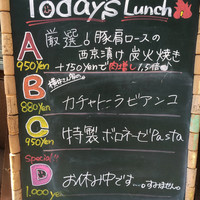 Today's Lunch
A 厳選!豚肩ロースの
950yen 西京漬け炭火焼き
+150yenで肉増し1.5倍
B
880yen カチャトーラビアンコ
C 特製ボロネーゼPasta
950yen
Special!!
D お休み中です...。すみません。
1,000yen